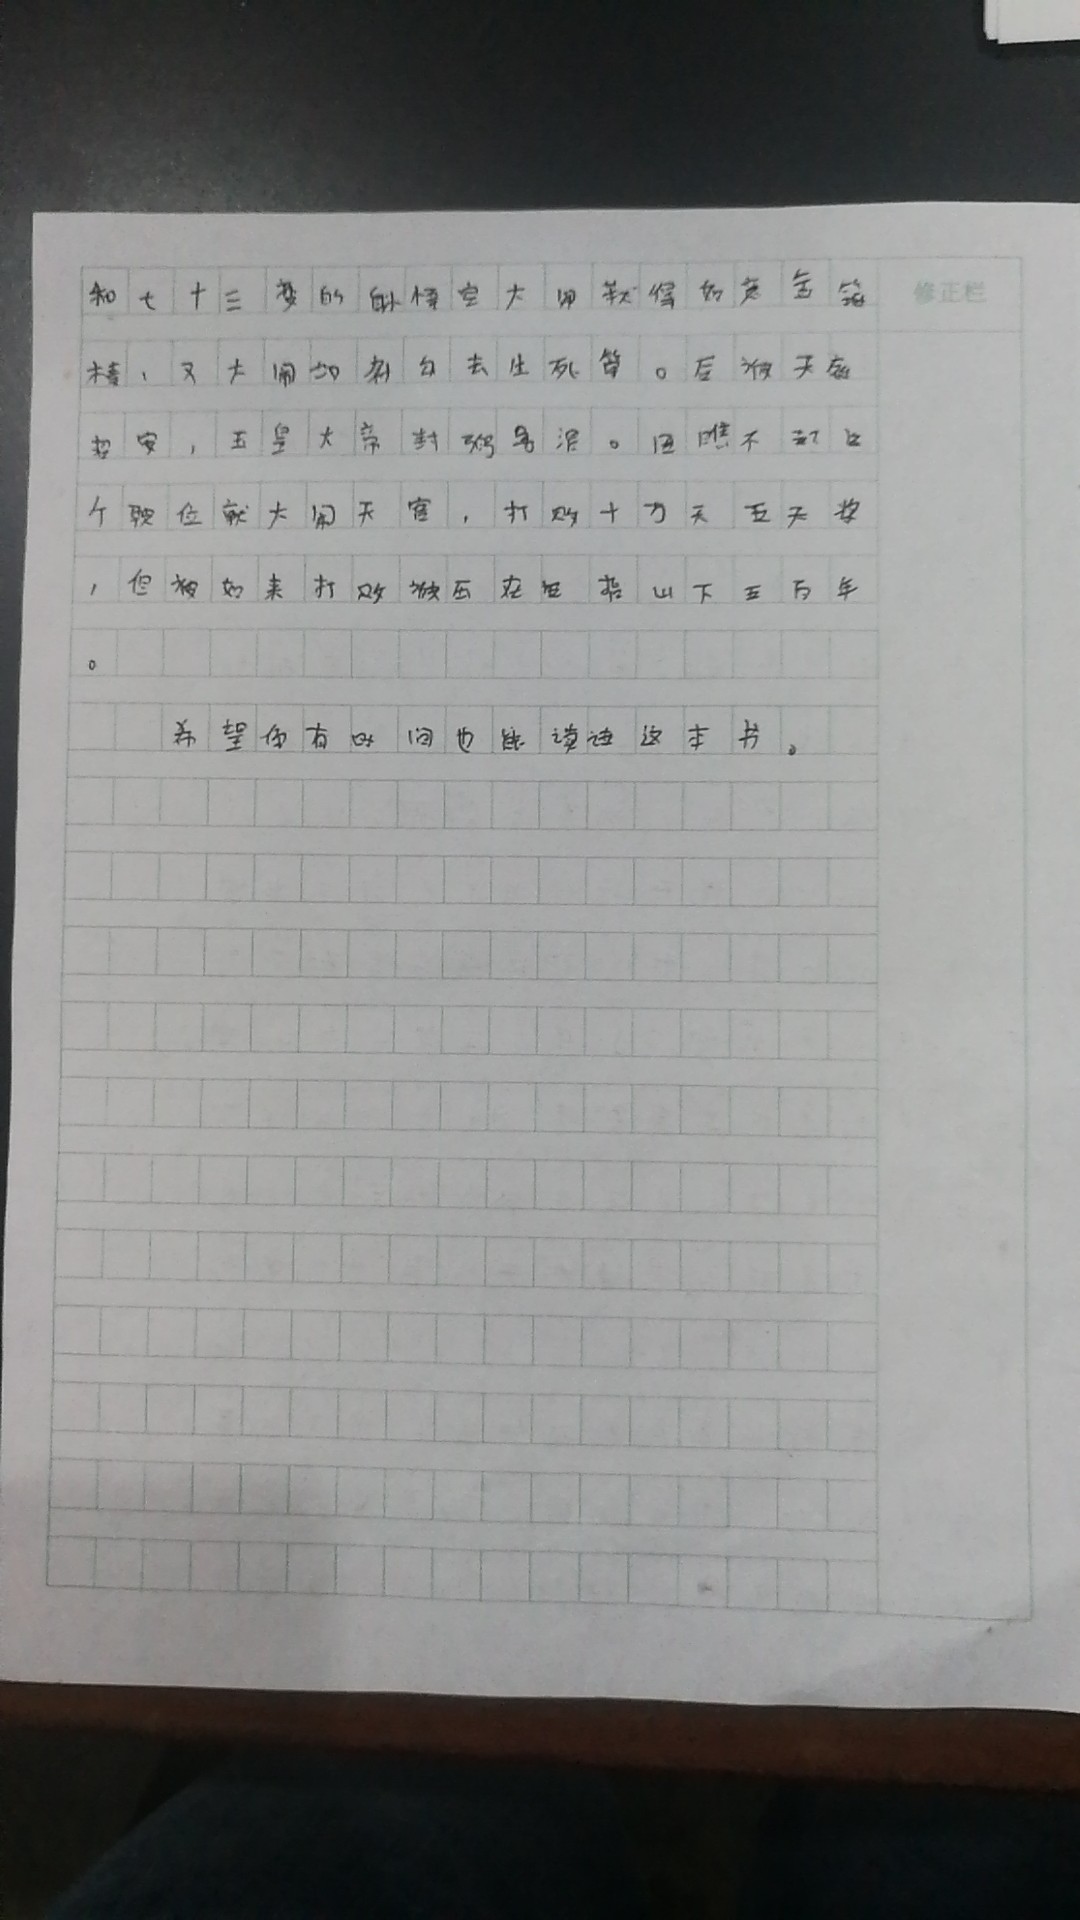 和七十三变的孙悟空大闹获得如意金箍
修正栏
棒,又大闹地府勾去生死簿。后被天庭
招安,玉皇大帝封弼马温。因瞧不起这
个职位就大闹天宫,打败十万天兵天将
,但被如来打败被压在五指山下五百年
。
希望你有时间也能读读这本书。